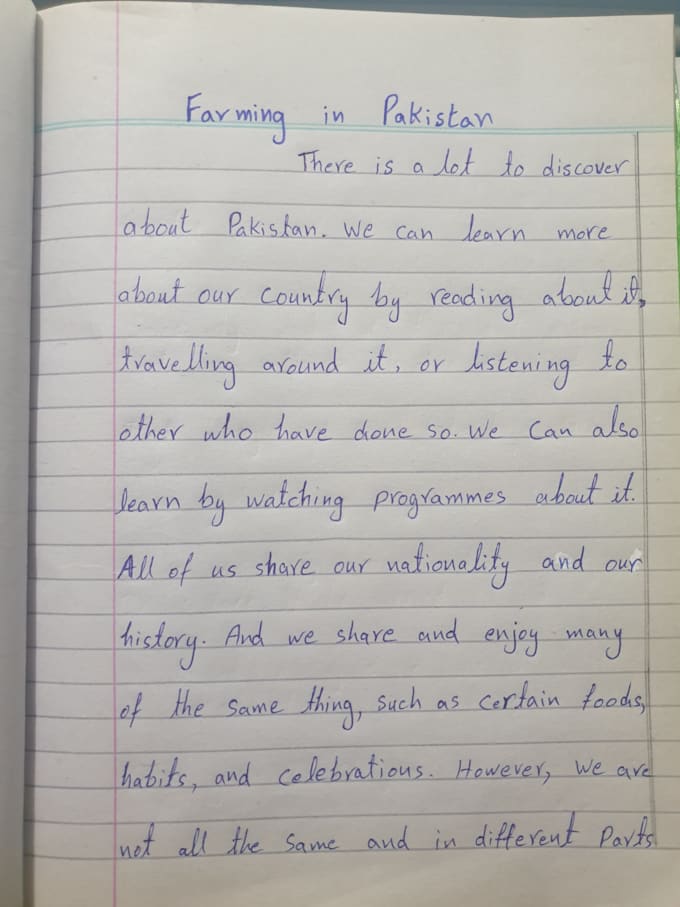 Farming in Pakistan
There is a lot to discover
about Pakistan. We can learn more
about our country by reading about it,
travelling around it, or listening to
other who have done so. We can also
learn by watching programmes about it.
All of us share our nationality and our
history. And we share and enjoy many
of the same thing, such as certain foods,
habits, and celebrations. However, we are
not all the same and in different parts